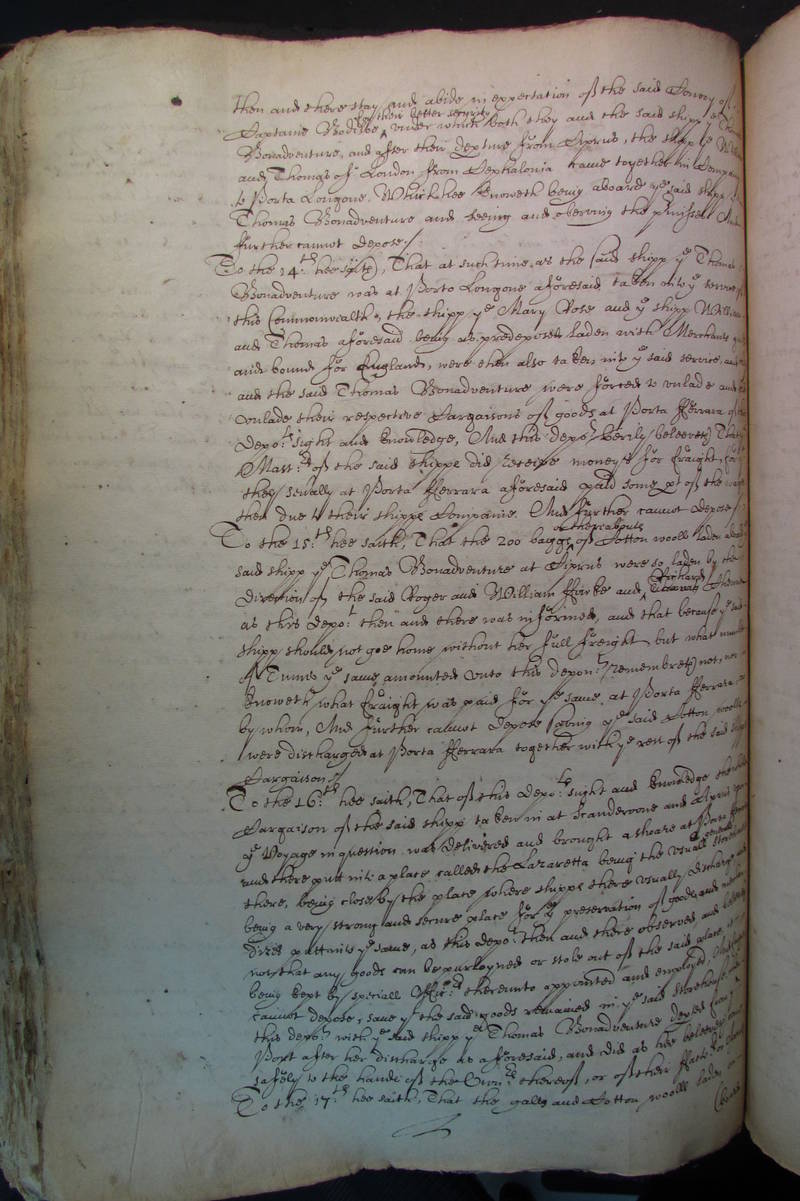 then and there stay and abide in expectation of the said Convoy of
for their better security
Captaine Bodilee, under which both they and the said shipp ye Thomas
Bonadventure, and after their depture from Ciprus, the shipp ye William
and Thomas of London from Cephalonia came together in Company
to Porto Longone. Which hee knoweth being aboard ye said shipp
Thomas Bonadventure and seeing and observing the pmisses And
further cannot depose /
To the 14th. hee saith, That at such time as the said shipp ye Thomas
Bonadventure was at Porto Longone aforesaid taken into ye service of
this Commonwealth, the shipp ye Mary Rose and ye shipp William
and Thomas aforesaid being as predeposed laden with Merchants goods
and bound for England, were then also taken into ye said service, and
and the said Thomas Bonadventure were forced to unlade and
unlade their respective Cargaisons of goods at Porta Fferrara of
depots sight and knowledge, And this depot verily beleeveth That
Masters of the said shipps did receive moneys for fraight, for
they severally at Porta Fferrara aforesaid paid some pt of the wages
then due to their shipps Companie. And further cannot depose /
or thereabouts
To the 15th. hee saith, That the 200 baggs of Cotton wooll laden aboard
said shipp ye Thomas Bonadventure at Ciprus were so laden by the
Richard
direction of the said Roger and William Ffowke and
as this depot. then and there was informed, and that because ye said
shipp should not goe home without her full freight but what number
of Tunns ye same amounted unto this depont. remembreth not, nor
knoweth what fraight was paid for ye same at Porta Fferrara
by whom, And further cannot depose saving ye said Cotton wooll
were discharged at Porta Fferrara together with ye rest of the said shipps
Cargaison /
To the 16th. hee saith, That of this depots sight and knowledge the whole
Cargaison of the said shipp taken in at Scanderoone and Ciprus
ye Voyage in question was delivered and brought ashoare at Porta Fferrara
and there putt into a place called the Lazaretta being the usuall storehouse
there, being close by the place where shipps there usually discharge and
being a very strong and secure place for ye preservation of goods and
dizes putt into ye same, as this depot. then and there observed and beleeveth
not that any goods can be purloyned or stole out of the said place, it
being kept by speciall Officers thereunto appointed and employed,
cannot depose, save yt the said goods remained in ye said storehouse
this depot. with ye said shipp ye Thomas Bonadventure depted from
Port after her discharge as aforesaid, and did as hee beleeveth come
safely to the hands of the Owners thereof, or of their Factors
To the 17th. hee saith, That the galls and Cotton wooll laden